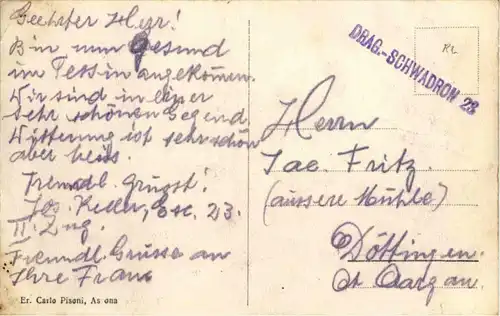 Geehrter Herr!
Bin nun Gesund
im Tessin angekomen.
Wir sind in einer
Sehr schönen Gegend.
Witterung ist sehr schön
aber heiss.
Freundl. grüsst!
Jos. Keller, Esc. 23.
II. Zug.
Freundl. Grüsse an
Ihre Frau
Er. Carlo Pisoni, As ona
DRAG.-SCHWADRON 23
Herrn
Jac. Fritz.
(äussere Mühle)
Döttingen.
Kt Aargau.